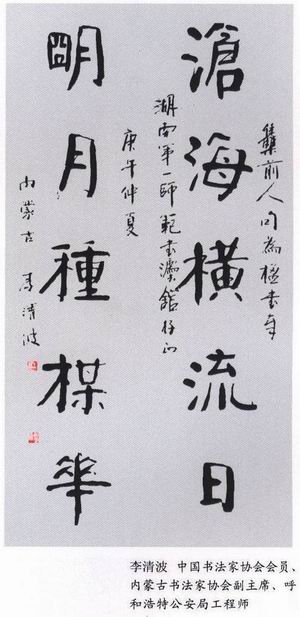 集前人句為楹書奉
滄海橫流日
湖南第一師範書畫館存正
庚午仲夏
朙月種楳華
内蒙古 李清波
李清波 中国书法家协会会员、
内蒙古书法家协会副主席、呼
和浩特公安局工程师